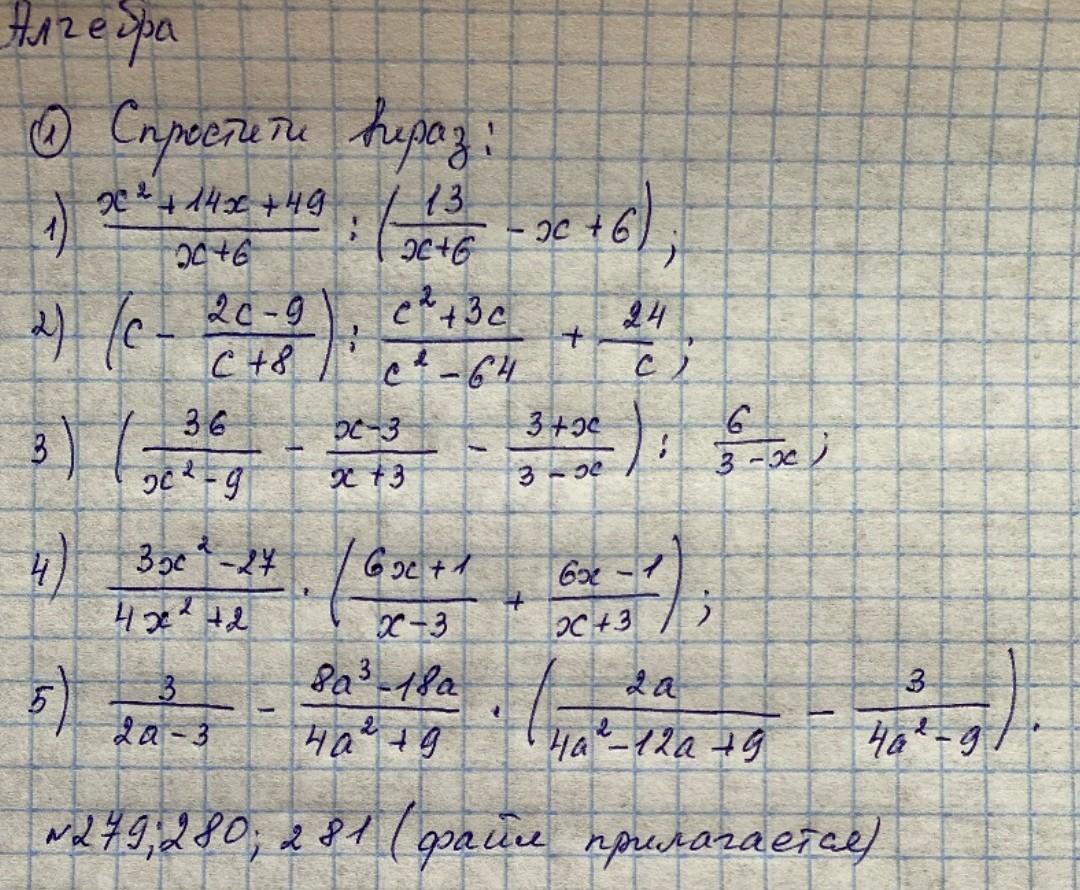 Алгебра
① Спростити вираз:
1) (x² + 14x + 49)/(x+6) : (13/(x+6) - x + 6);
2) (c - (2c - 9)/(c + 8)) : (c² + 3c)/(c² - 64) + 24/c;
3) (36/(x² - 9) - (x - 3)/(x + 3) - (3 + x)/(3 - x)) : 6/(3 - x);
4) (3x² - 27)/(4x² + 2) · ((6x + 1)/(x - 3) + (6x - 1)/(x + 3));
5) 3/(2a - 3) - (8a³ - 18a)/(4a² + 9) · (2a/(4a² - 12a + 9) - 3/(4a² - 9)).
№279; 280; 281 (файл прилагается)